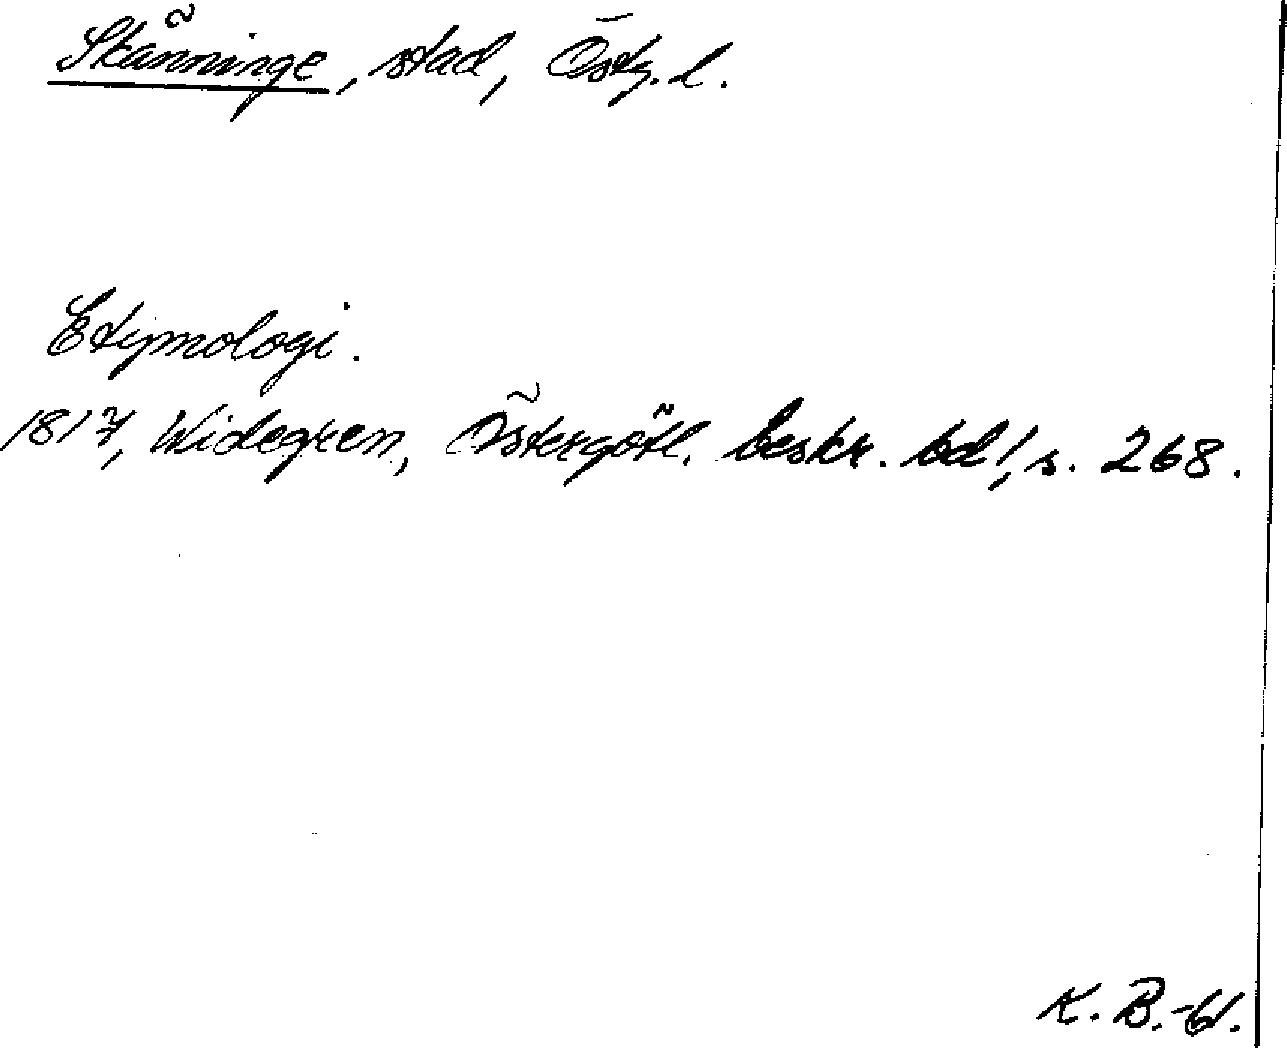 Skänninge, stad, Östg. l.
Etymologi.
1817, Widegren, Östergötl. beskr. bd 1, s. 268.
K. B.-61.